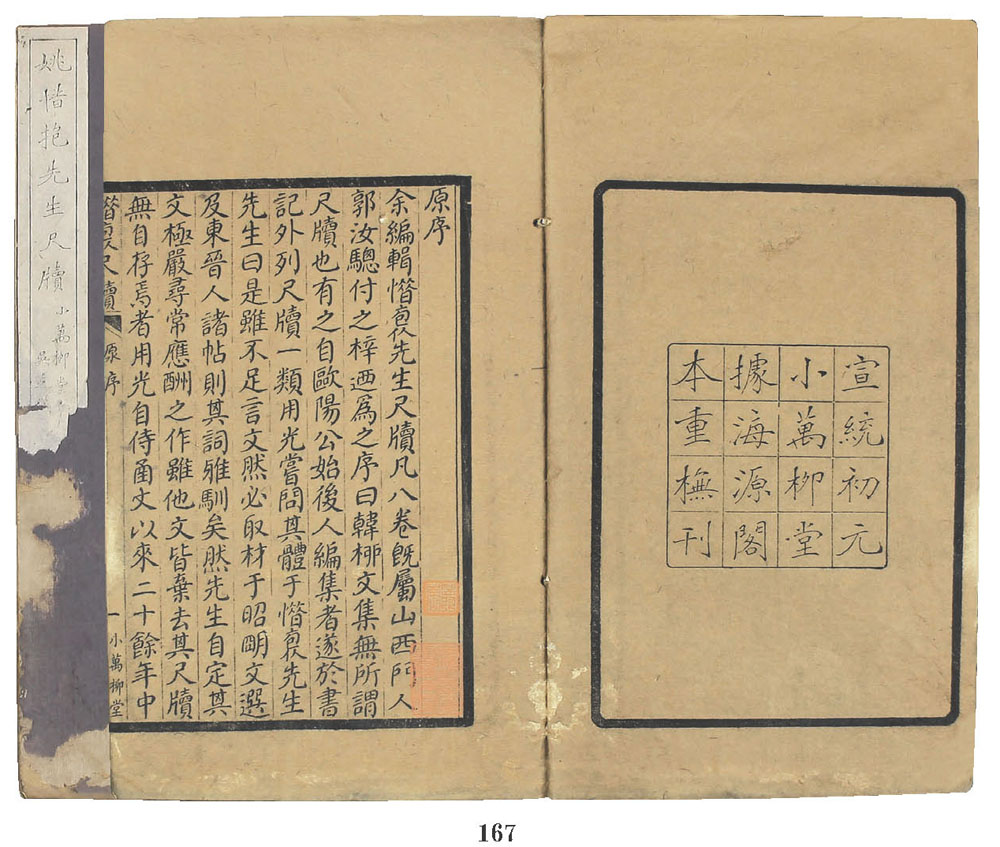 宣統初元
小萬柳堂
據海源閣
本重橅刊
原序
余編輯惜袌先生尺牘凡八卷旣屬山西門人
郭汝驄付之梓迺爲之序曰韓柳文集無所謂
尺牘也有之自歐陽公始後人編集者遂於書
記外列尺牘一類用光嘗問其體于惜袌先生
先生曰是雖不足言文然必取材于昭明文選
及東晉人諸帖則其詞雅馴矣然先生自定其
文極嚴尋常應酬之作雖他文皆棄去其尺牘
無自存焉者用光自侍函丈以來二十餘年中
惜袌尺牘 原序 一 小萬柳堂
姚惜抱先生尺牘
小萬柳堂
167